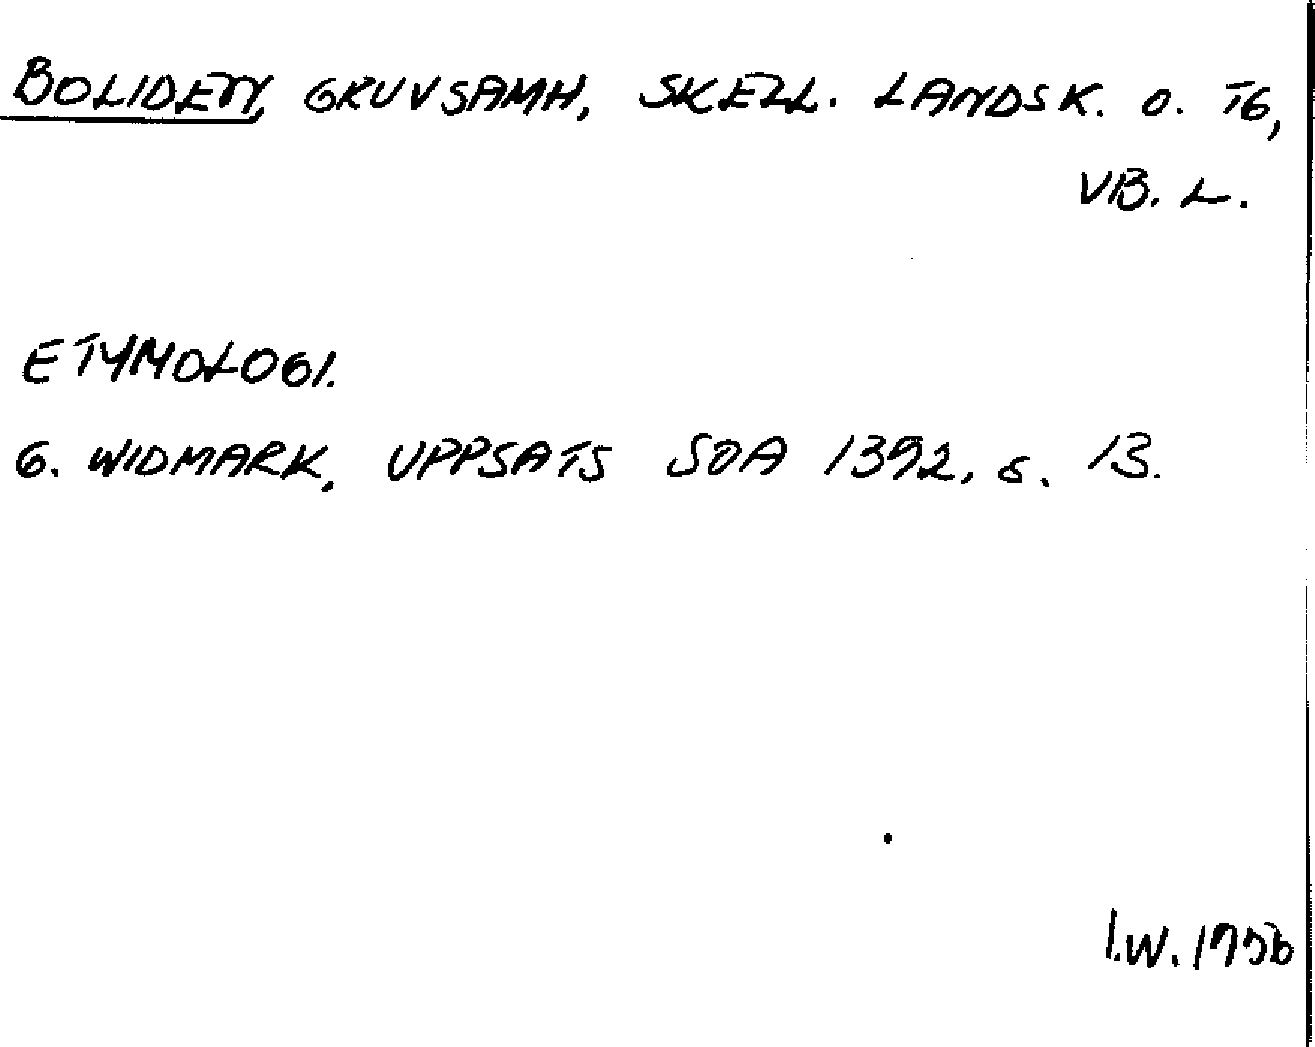 BOLIDEN, GRUVSAMH, SKELL. LANDSK. O. TG,
VB. L.
ETYMOLOGI.
G. WIDMARK, UPPSATS SOA 1392, s. 13.
I.W. 1956